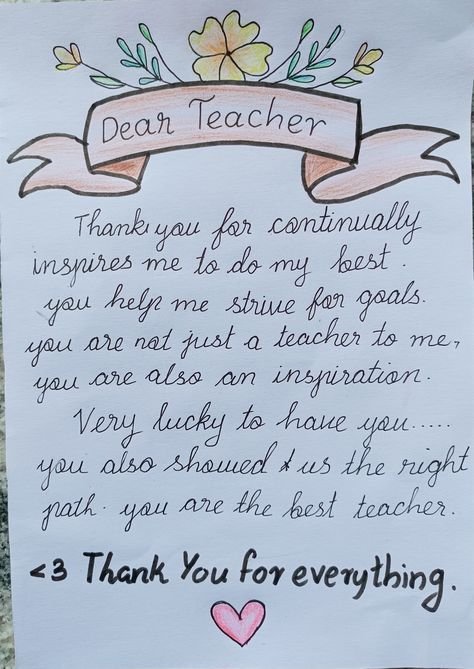 Dear Teacher
Thank you for continually
inspires me to do my best.
you help me strive for goals.
you are not just a teacher to me,
you are also an inspiration.
Very lucky to have you.....
you also showed & us the right
path. you are the best teacher.
<3 Thank You for everything.